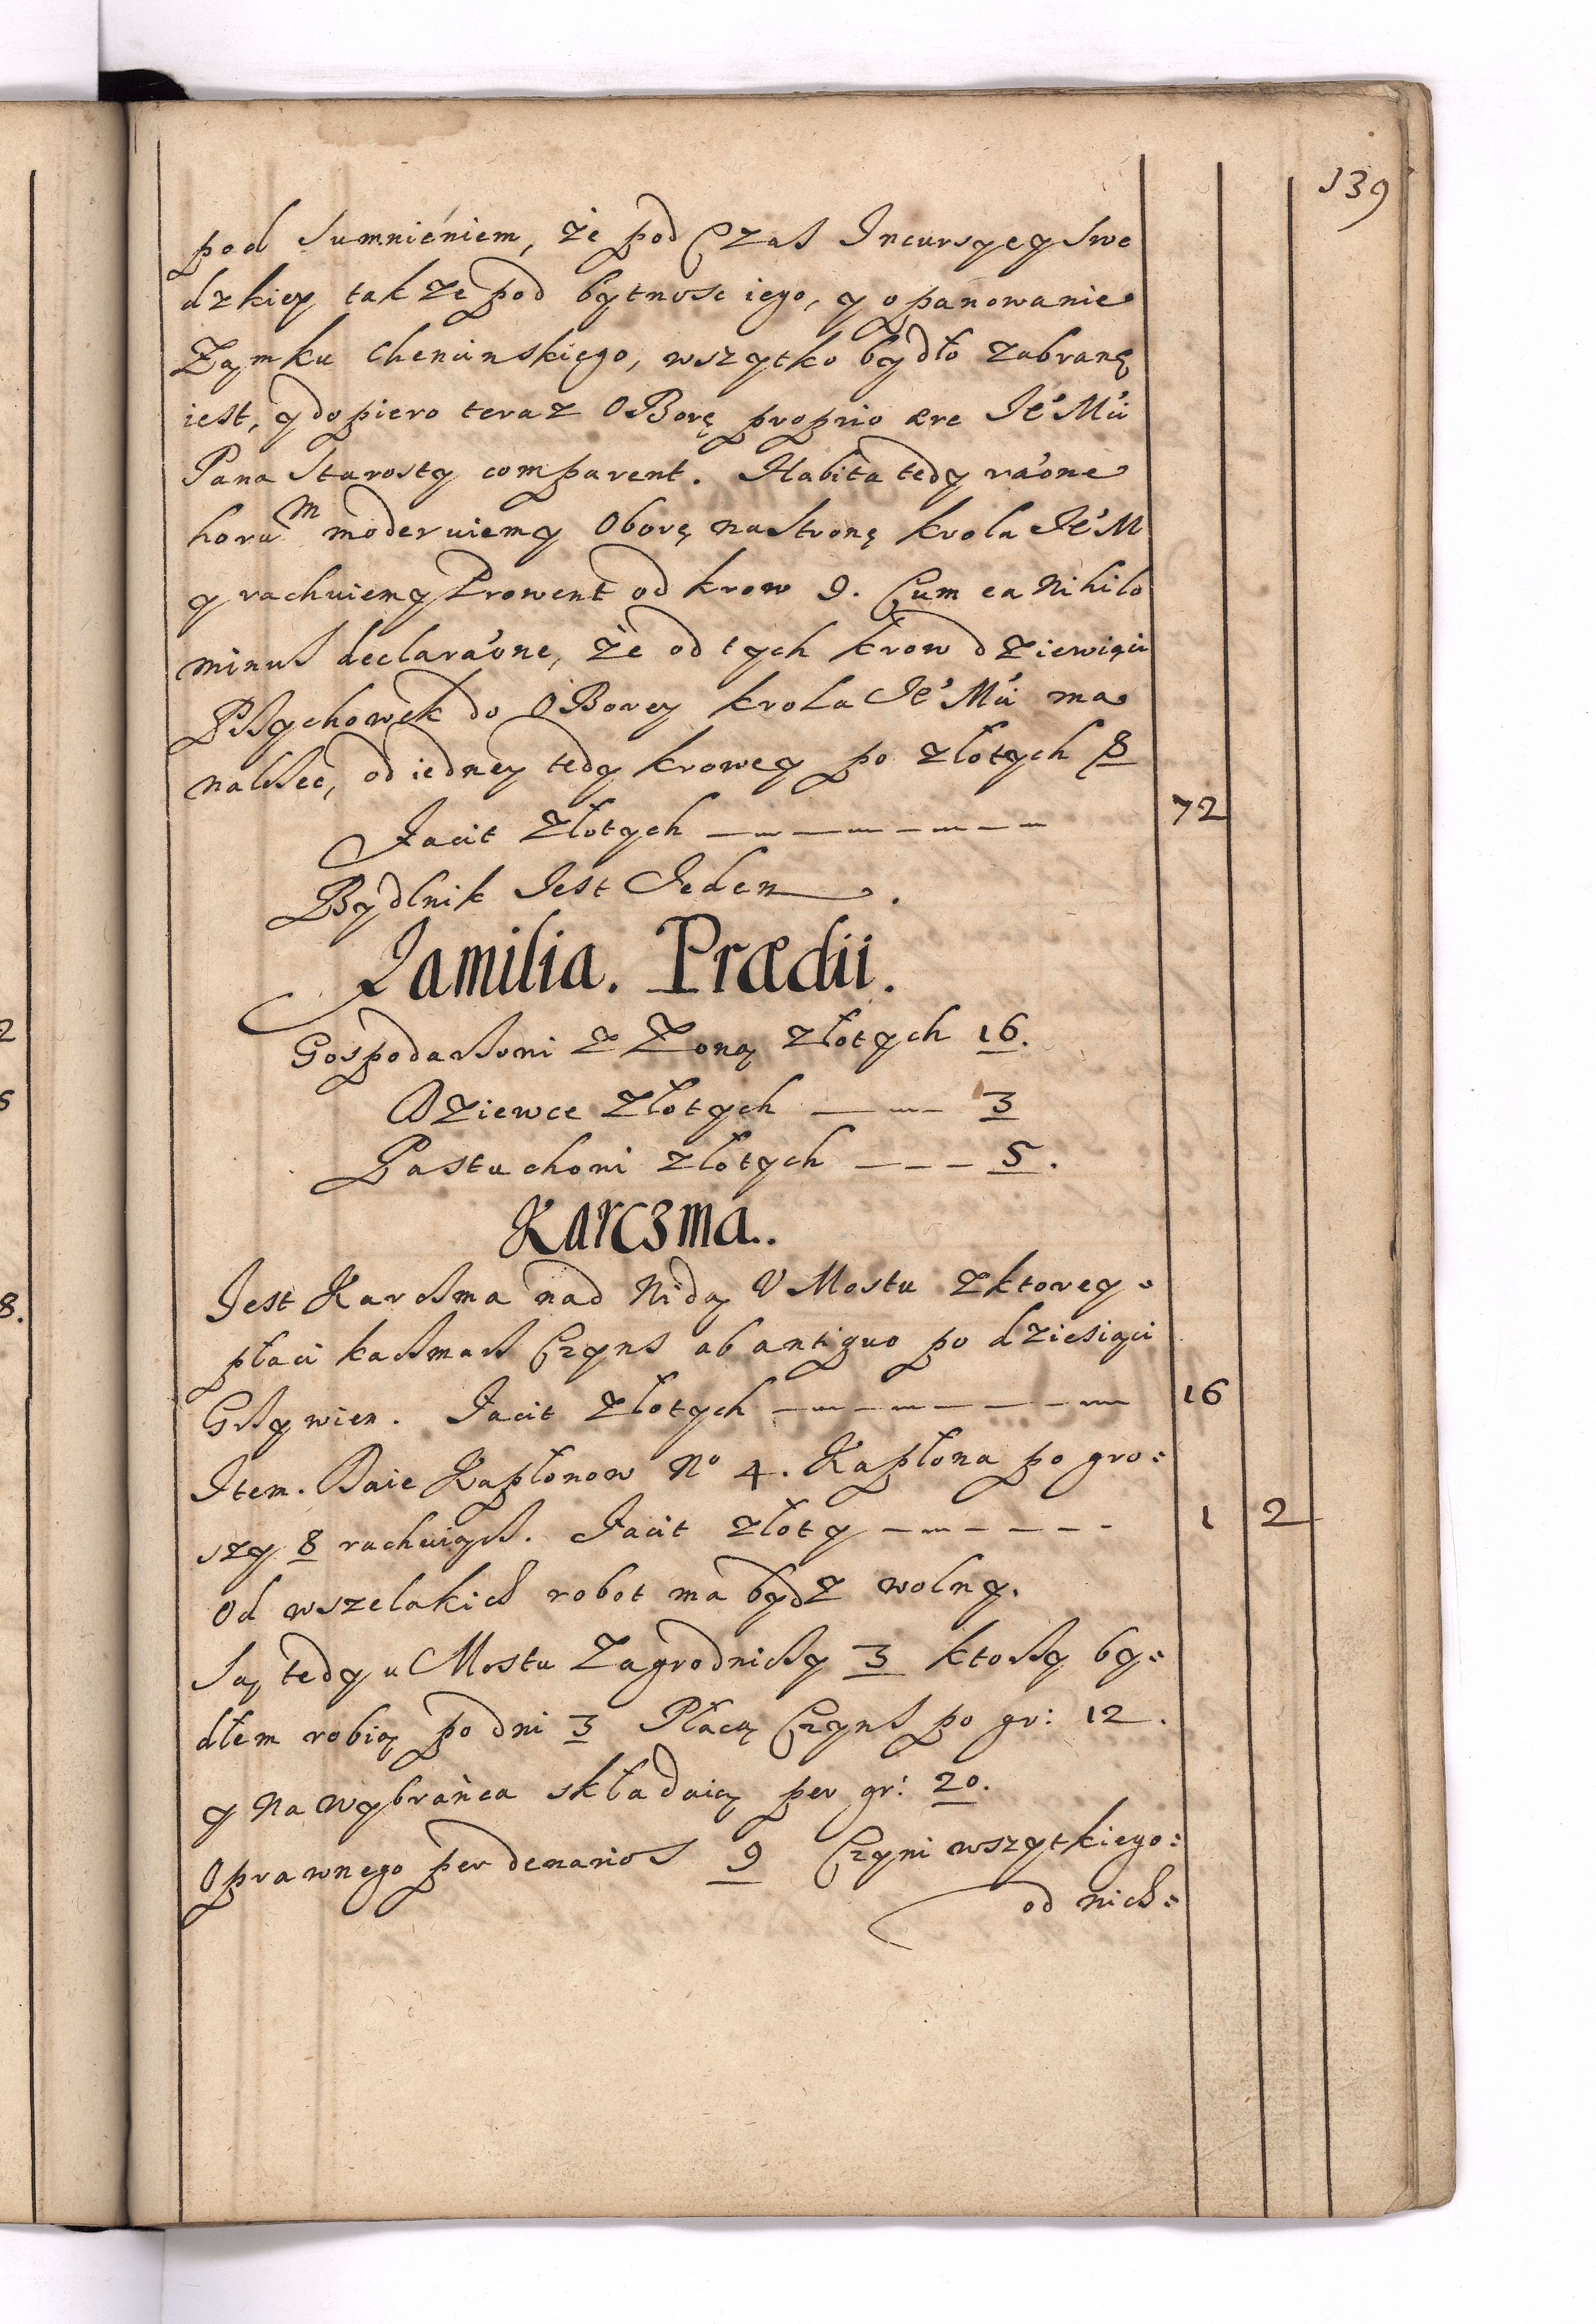 139
pod Sumnieniem, że pod Czas Incursyey Swe
dzkiey tak ze pod bytnosc iego, y opanowanie
Zamku Chencinskiego, wszytko bydło zabranę
iest, y dopiero teraz OBorę proprio ære Ie͛ Mci
Pana Starosty comparent. Habita tedy raone
horuᵐ moderuiemy Oborę na Stronę krola Ie͛ M
y rachuiemy Prowent od krow 9. Cum ea Nihilo
minus declaraone, że od tych krow dziewięci
Przychowek do OBorey krola Ie͛ Mci ma
należec, od iedney tedy krowey po złotych 8
Facit Złotych — — — — — 72
Bydlnik Iest Ieden.
Familia. Prædii.
Gospodarzowi z Zoną złotych 16.
Dziewce Złotych — — 3
Pastuchowi złotych — — — 5.
Karczma..
Iest Karczma nad Nidą V Mostu z ktorey
płaci kaczmarz Czyns ab antiquo po dziesiąci
Grzywien. Facit złotych — — — — — 16
Item. Daie Kapłonow No 4. Kapłona po gro:
szy 8 rachuiąc. Facit złoty — — — — 1 2
Od wszelakich robot ma bydz wolny.
Są tedy u Mostu Zagrodniczy 3 ktorzy by:
dłem robią po dni 3 Płacą Czyns po gr: 12.
y na wybrańca składaią per gr: 20.
Oprawnego per denarios 9 Czyni wszytkiego:
od nich:
2
5
8.